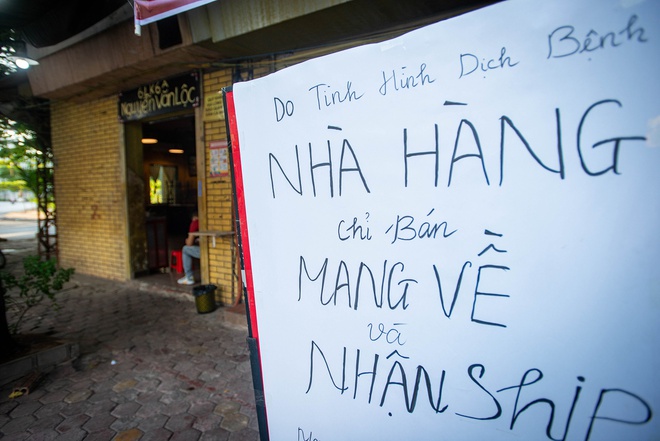 Do Tình Hình Dịch Bệnh
NHÀ HÀNG
Chỉ Bán
MANG VỀ
và
NHẬN Ship
Nguyễn Văn Lộc